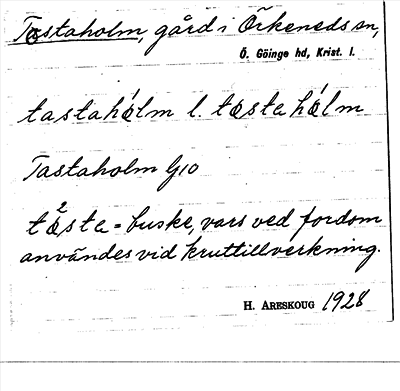 Tastaholm, gård i Örkeneds sn,
Ö. Göinge hd, Krist. l.
tastahólm l. tæstahólm
Tastaholm Gjo
tæ²sta = buske, vars ved fordom
användes vid kruttillverkning.
H. ARESKOUG 1928